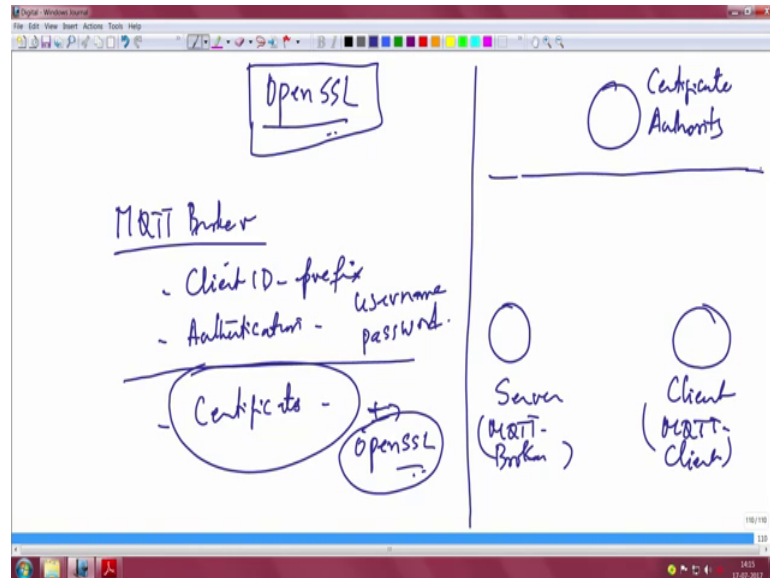 Digital - Windows Journal
File Edit View Insert Actions Tools Help
OpenSSL
MQTT Broker
- Client ID - prefix
- Authentication - username
password.
- Certificate -
OpenSSL
Certificate
Authority
Server
(MQTT-
Broker)
Client
(MQTT-
Client)
110/110
110
14:15
17-07-2017